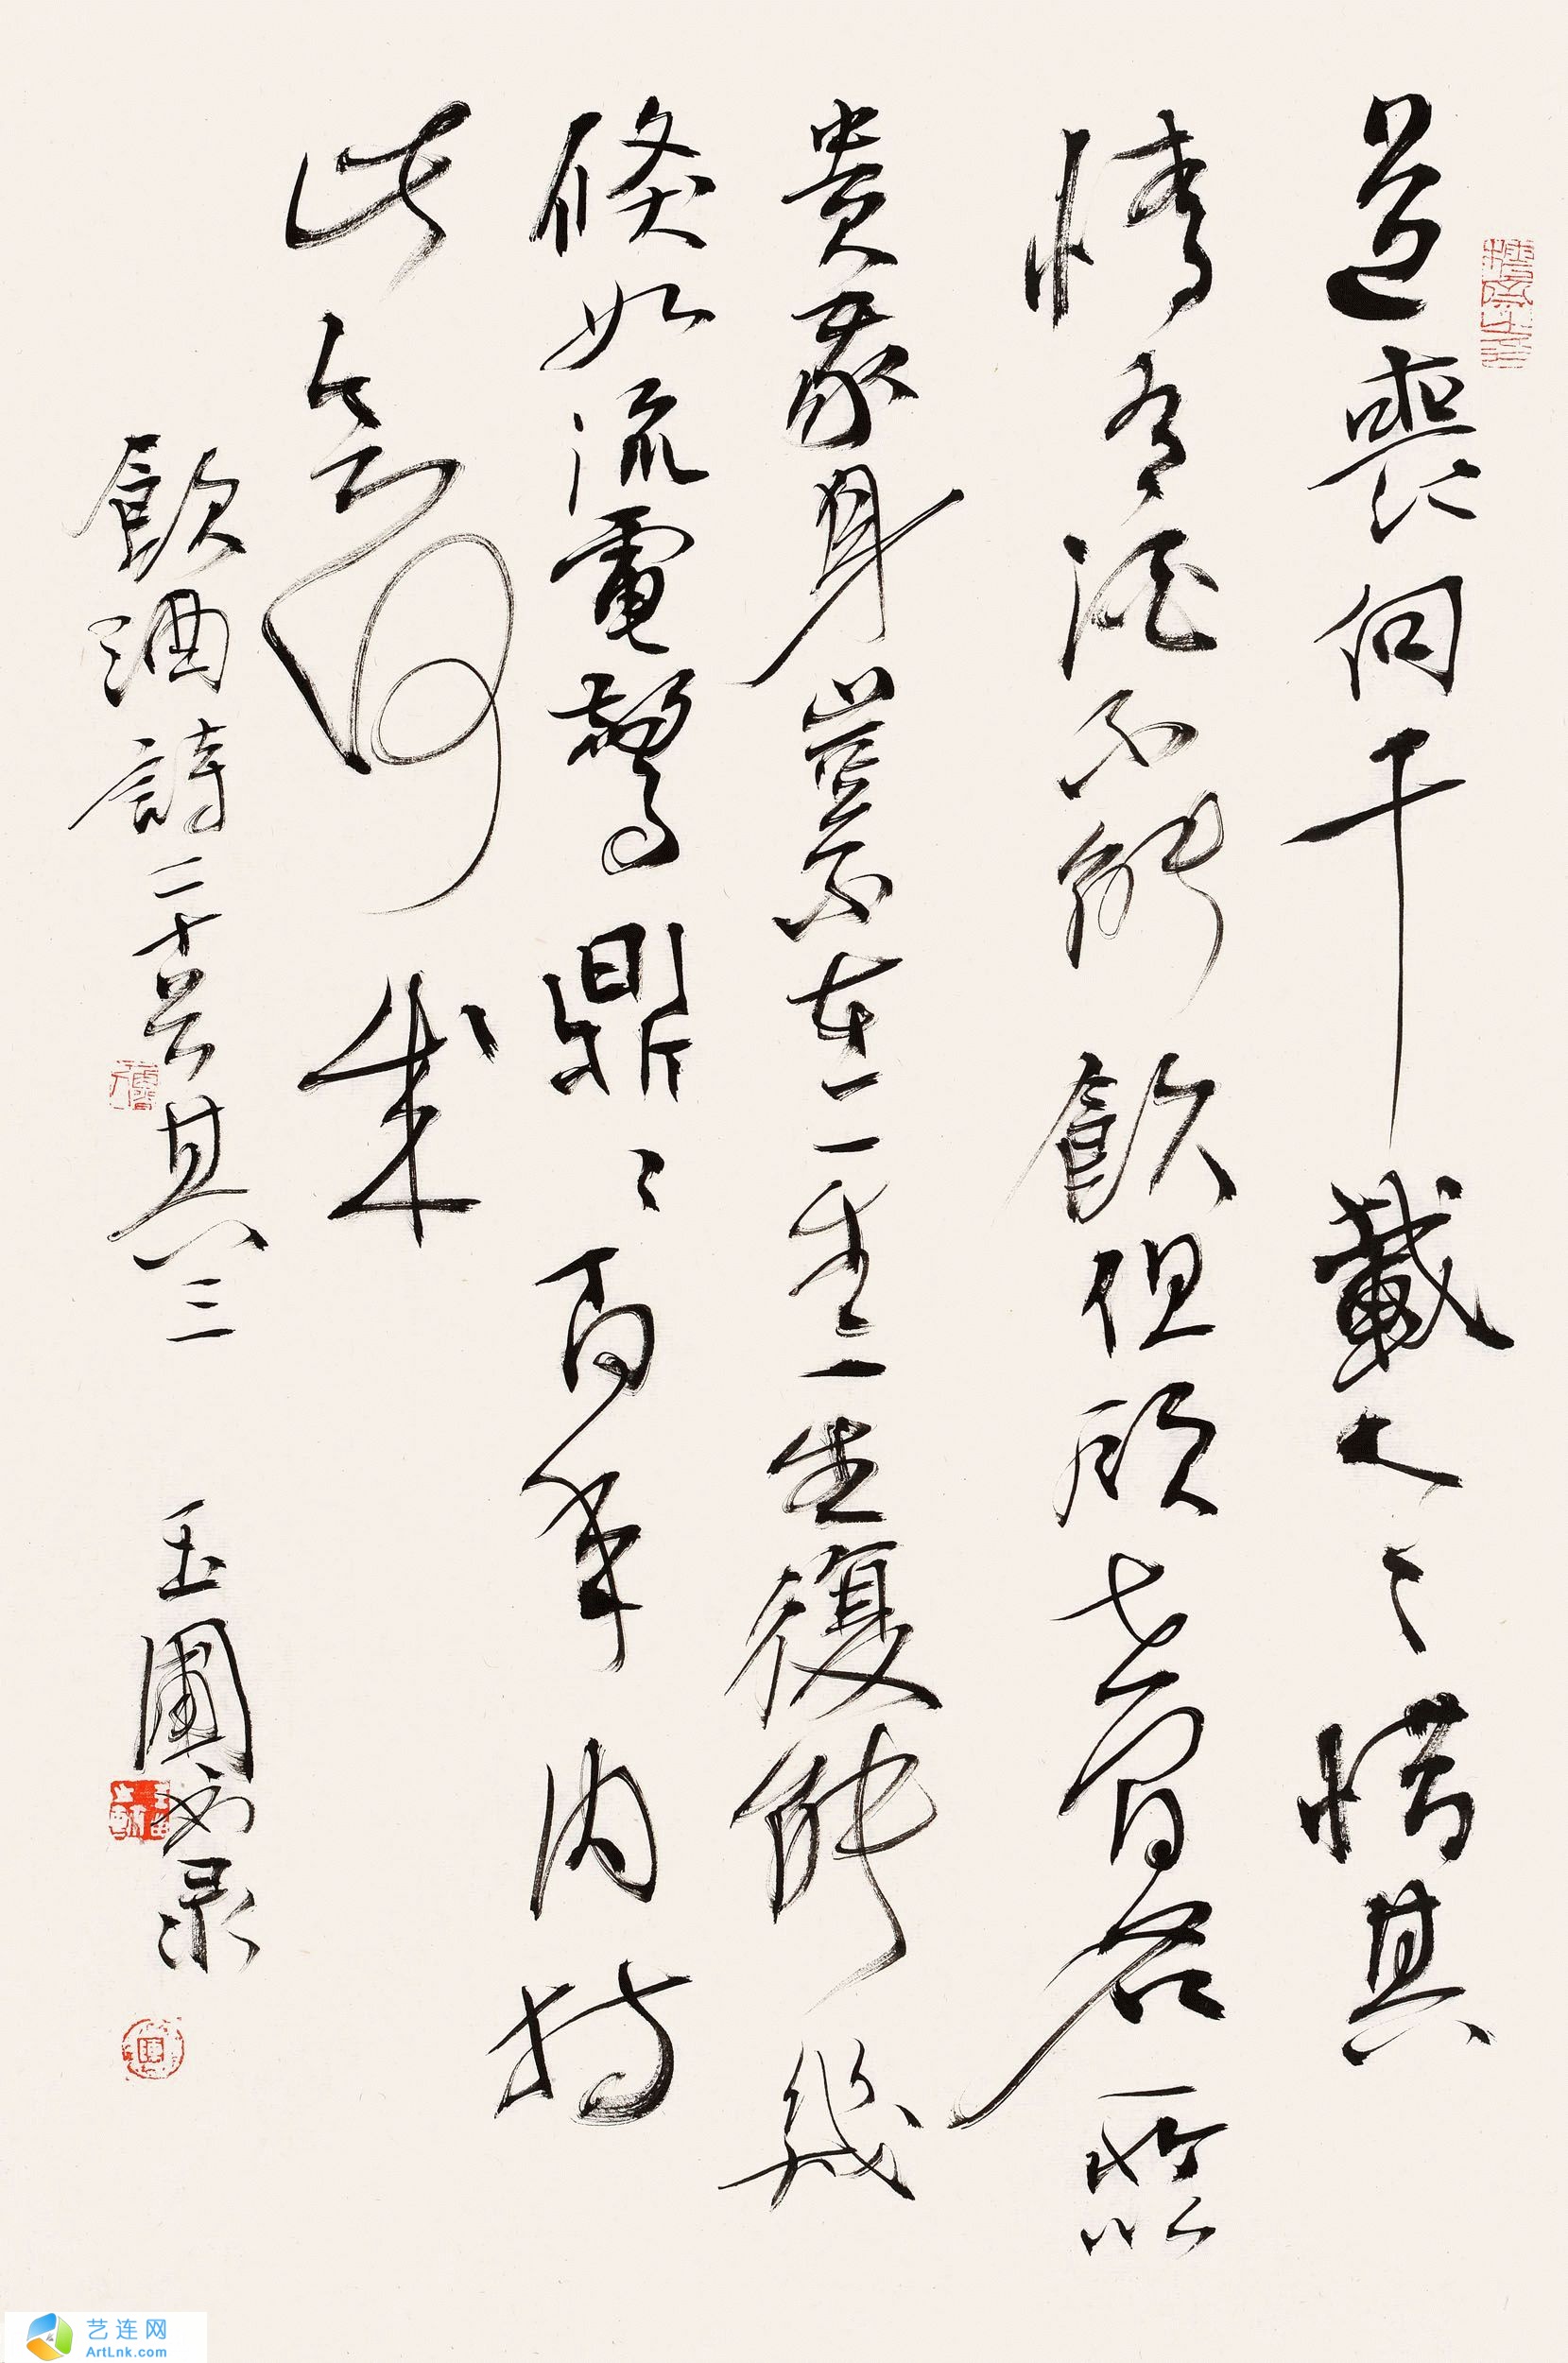 道喪向千載人〻惜其
情有酒不能飲但顧世間名所以
貴我身豈不在一生一生復能幾
倏如流電驚鼎〻百年內持
此欲何成
飲酒詩二十首其三 玉圃录
艺连网
ArtLnk.com